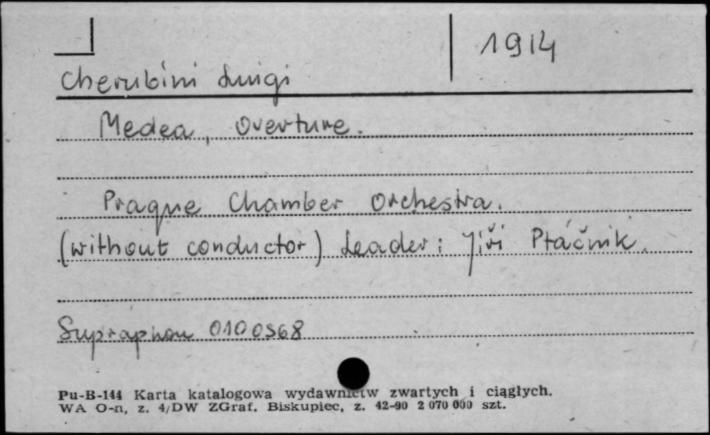 1914
Cherubini Luigi
Medea, overture.
Prague Chamber Orchestra.
(without conductor) Leader: Jiří Ptáčnik.
Supraphon 0100568
Pu-B-144 Karta katalogowa wydawnictw zwartych i ciągłych.
WA O-n, z. 4/DW ZGraf. Biskupiec, z. 42-90 2 070 000 szt.